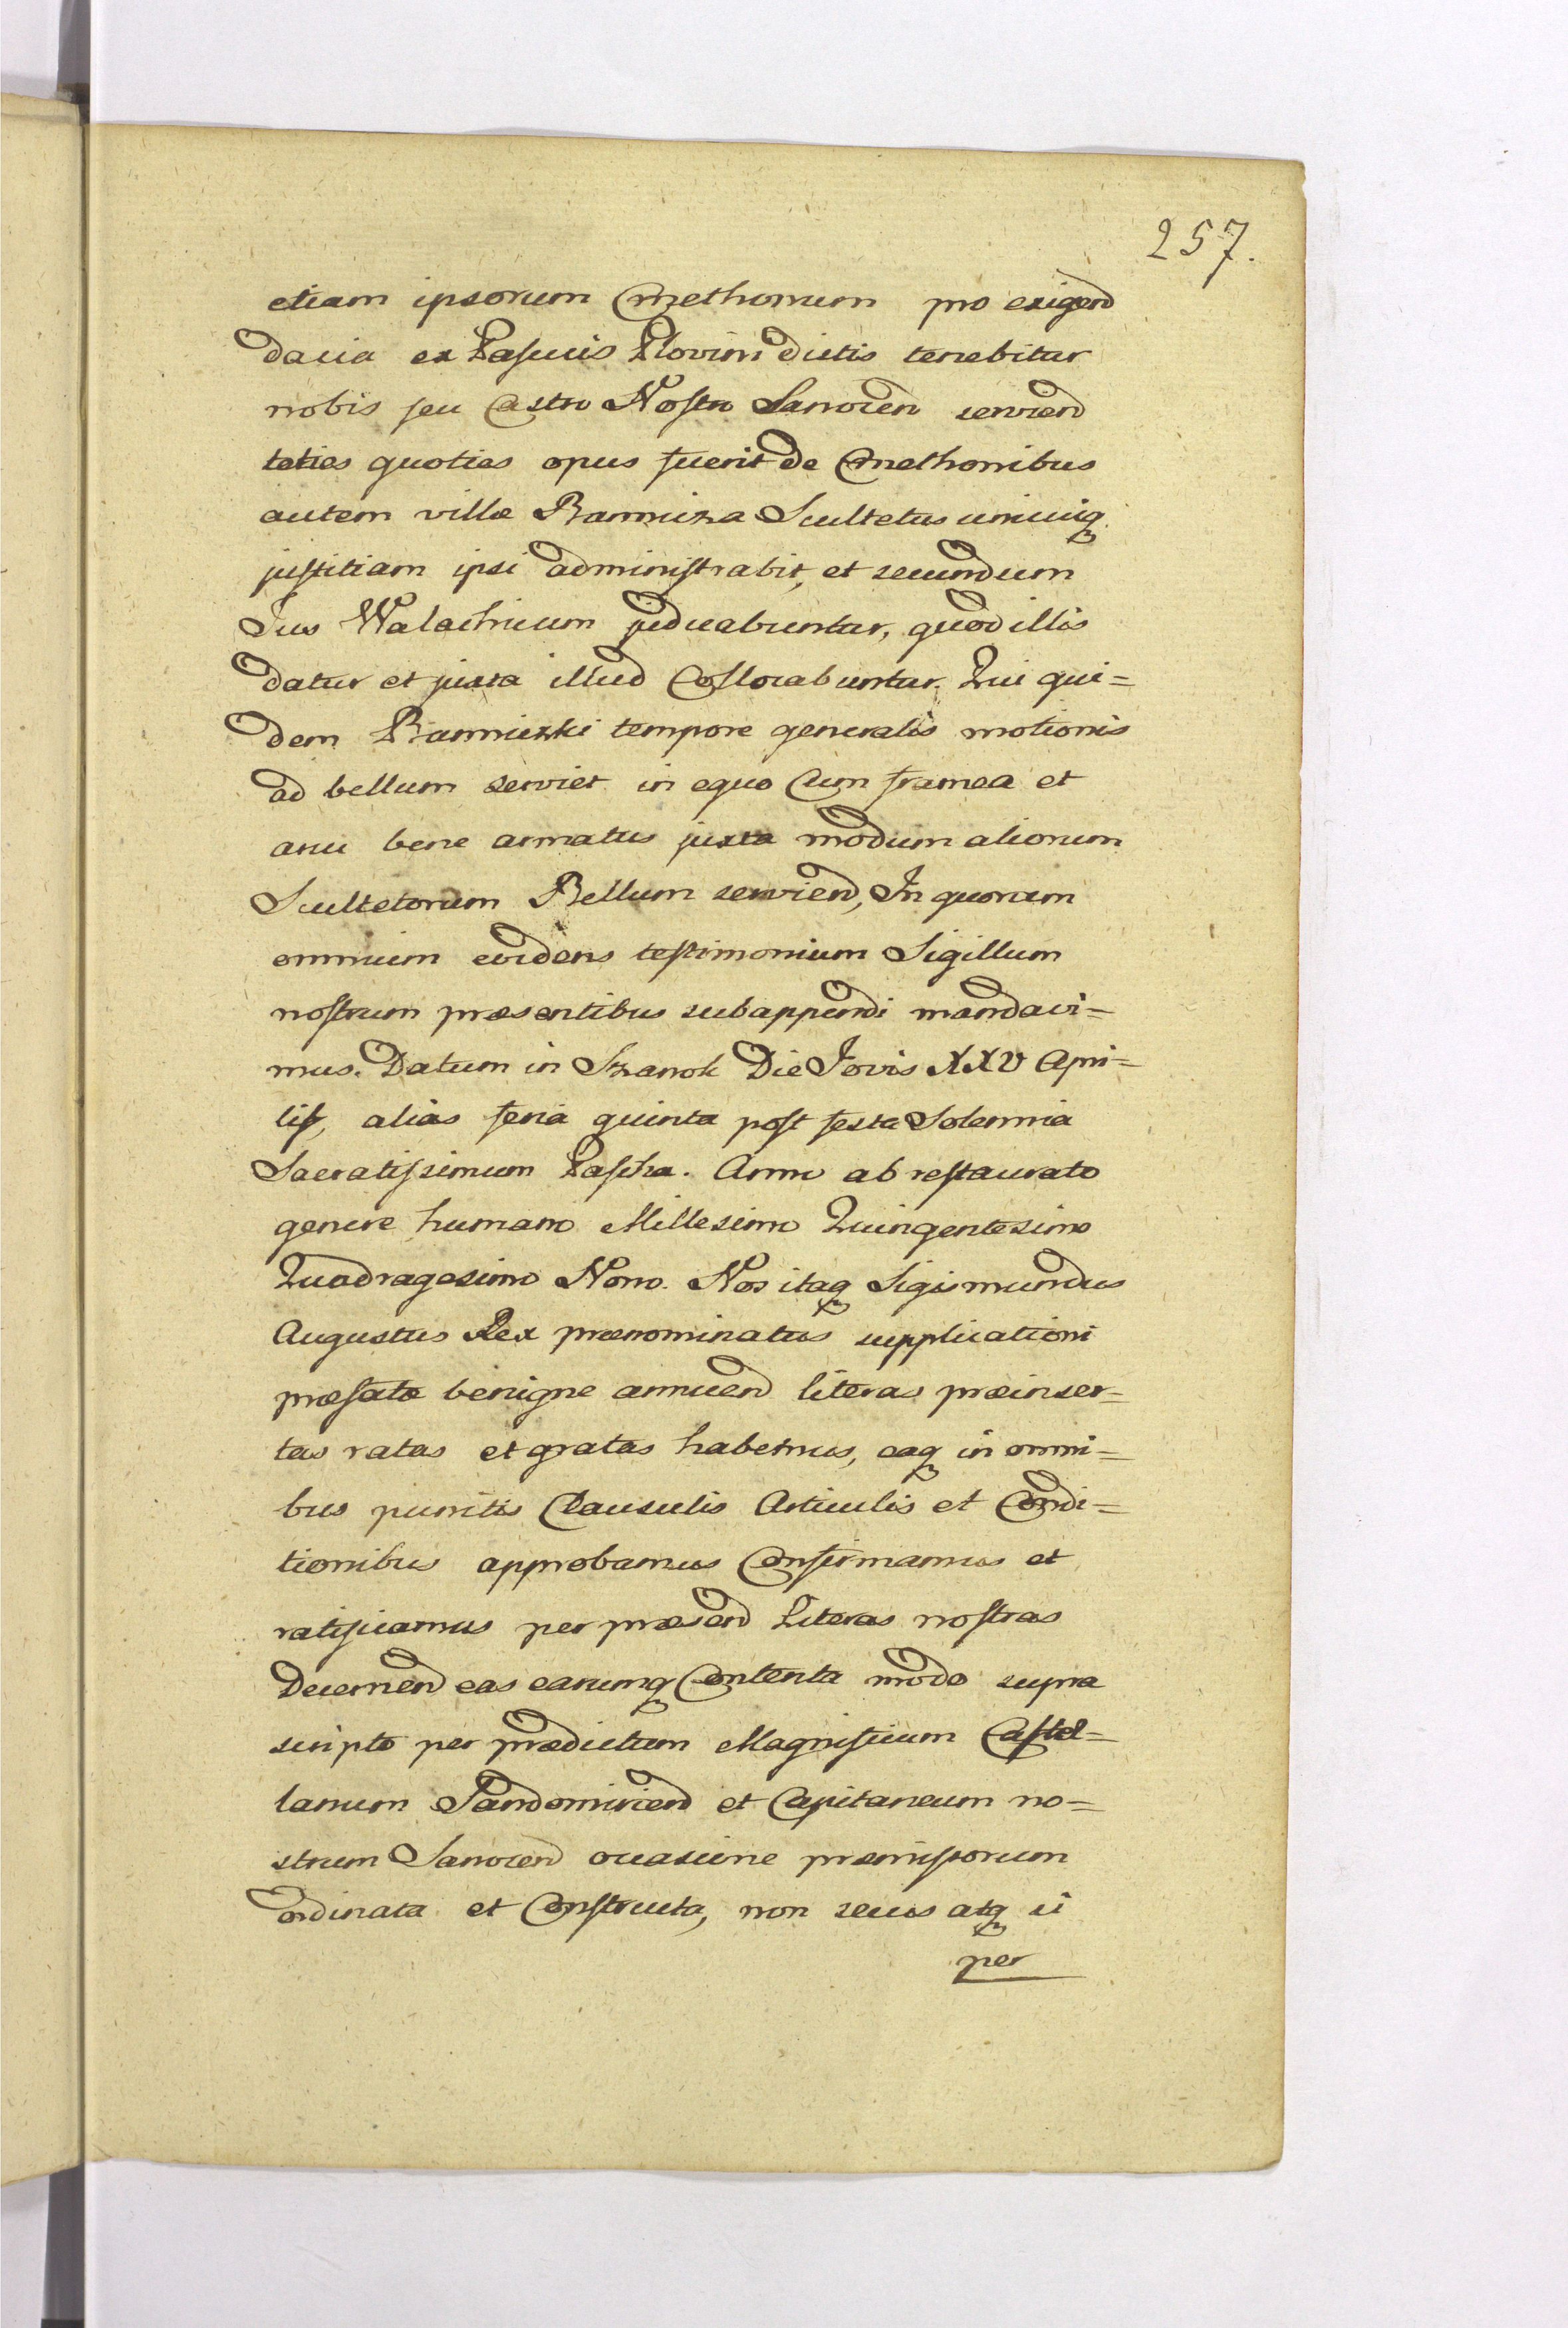 257.
etiam ipsorum Cmethonum pro exigend
dacia ex Pascuis Plovini dictis tenebitur
nobis seu Castro Nostro Sanocen serviend
toties quoties opus fuerit de Cmethonibus
autem villæ Bannicza Scultetus unicuiq
justitiam ipsi administrabit, et secundum
Jus Walachicum judicabuntur, quod illis
datur et juxta illud Collocabuntur. Qui qui=
dem Banniczki tempore generalis motionis
ad bellum serviet in equo Cum framea et
arcu bene armatus juxta modum aliorum
Scultetorum Bellum serviend, In quorum
omnium evidens testimonium Sigillum
nostrum præsentibus subappendi mandavi=
mus. Datum in Szanok Die Jovis XXV Apri=
lis, alias feria quinta post festa Solennia
Sacratissimum Pascha. Anno ab restaurato
genere humano Millesimo Quingentesimo
Quadragesimo Nono. Nos itaq Sigismundus
Augustus Rex prænominatus supplicationi
præfatæ benigne annuend literas præinser=
tas ratas et gratas habemus, eaq in omni=
bus punctis Clausulis Articulis et Condi=
tionibus approbamus Confirmamus et
ratificamus per præsend Literas nostras
Decernend eas earumq Contenta modo supra
scripto per prædictum Magnificum Castel=
lanum Sandomiriend et Capitaneum no=
strum Sanocend occasione præmissorum
ordinata et Constructa, non secus atq ii
per